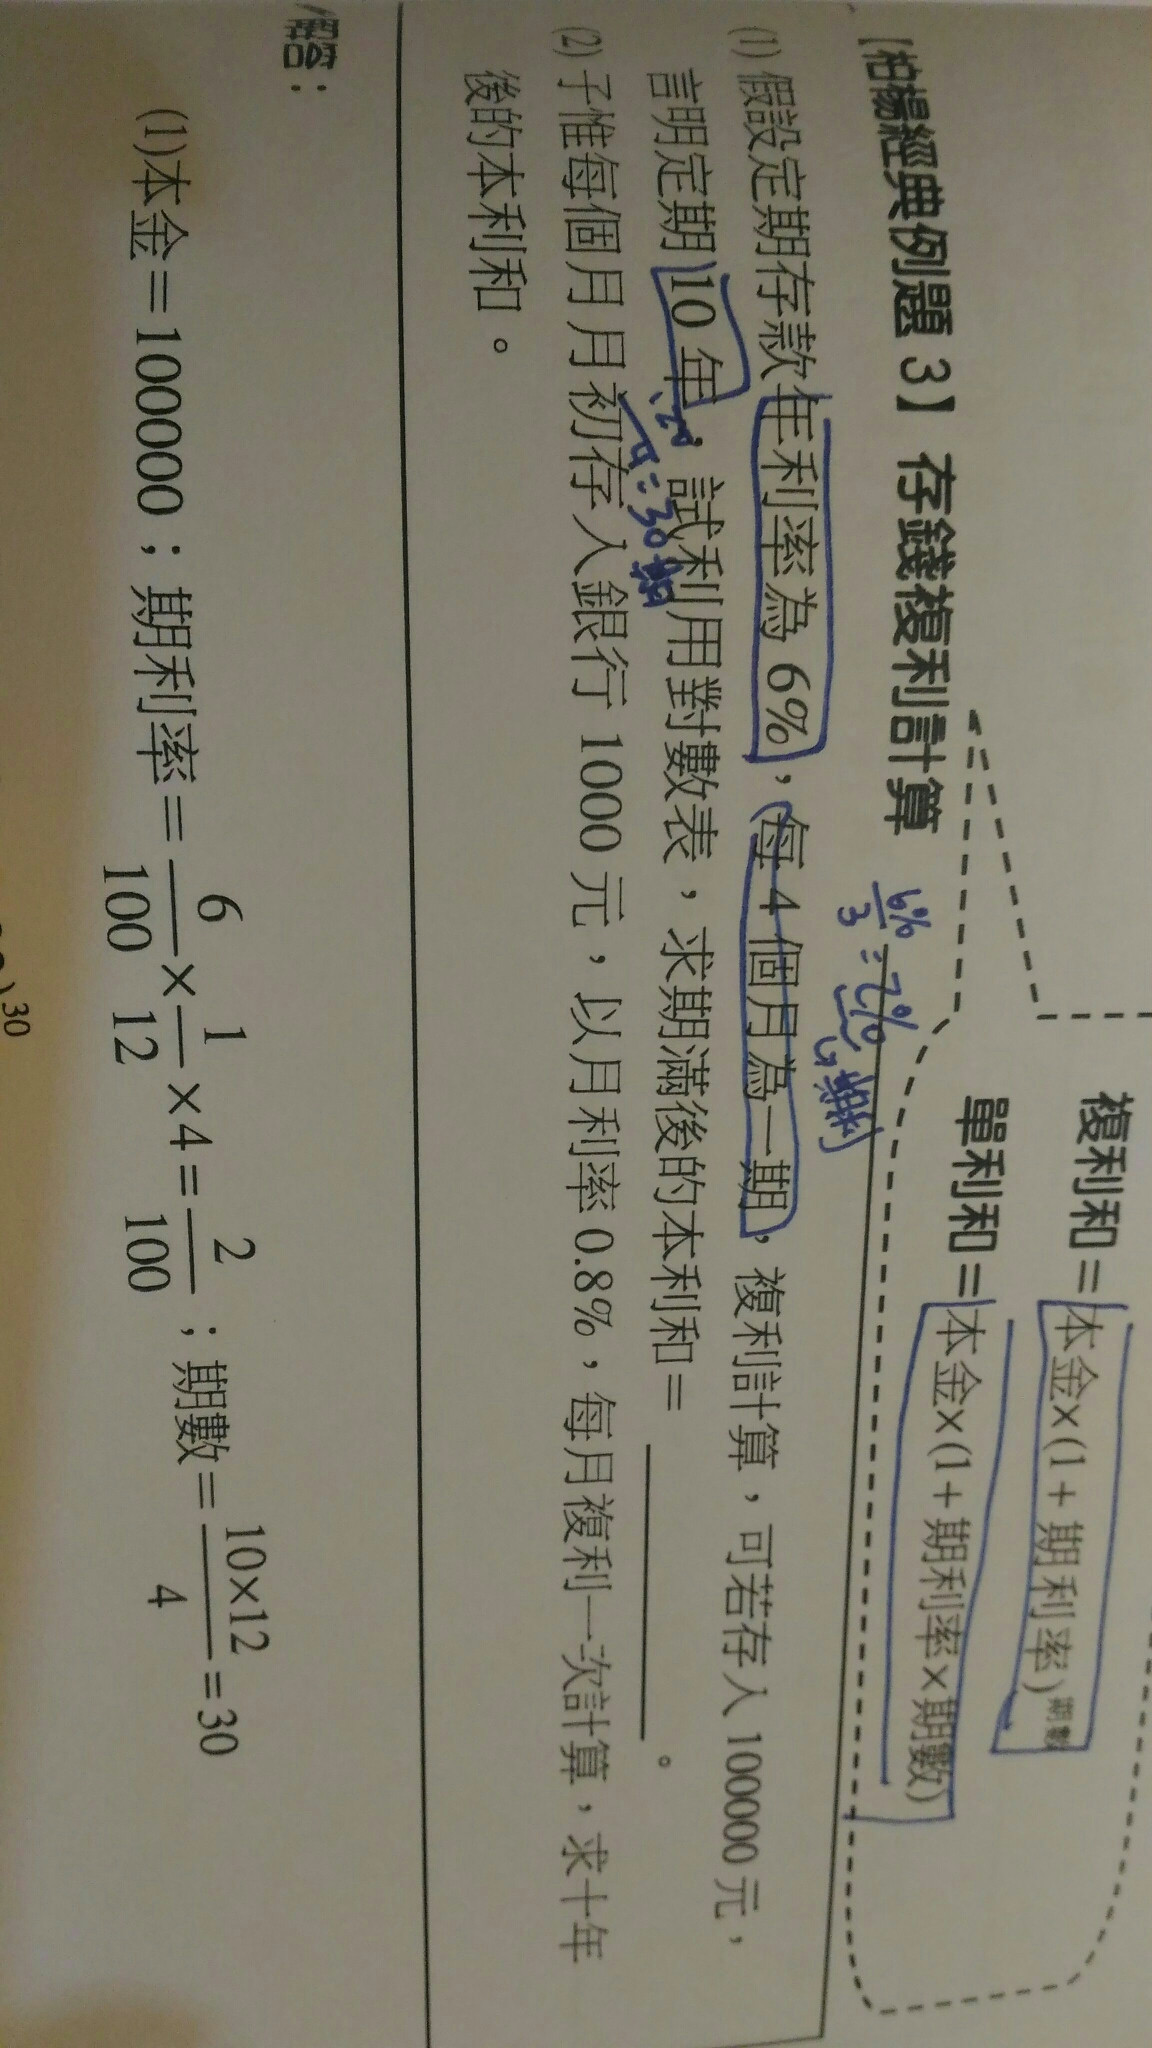 【柏楊經典例題 3】 存錢複利計算
複利和＝本金×(1+期利率)^期數
單利和＝本金×(1+期利率×期數)
6%/3 = 2%
(1) 假設定期存款年利率為 6%，每 4 個月為一期，複利計算，可若存入 100000 元，
言明定期 10 年，試利用對數表，求期滿後的本利和＝________。
120/4 = 30期
(2) 子惟每個月月初存入銀行 1000 元，以月利率 0.8%，每月複利一次計算，求十年
後的本利和。
解答：
(1)本金＝100000；期利率＝6/100×1/12×4＝2/100；期數＝10×12/4＝30
)^30